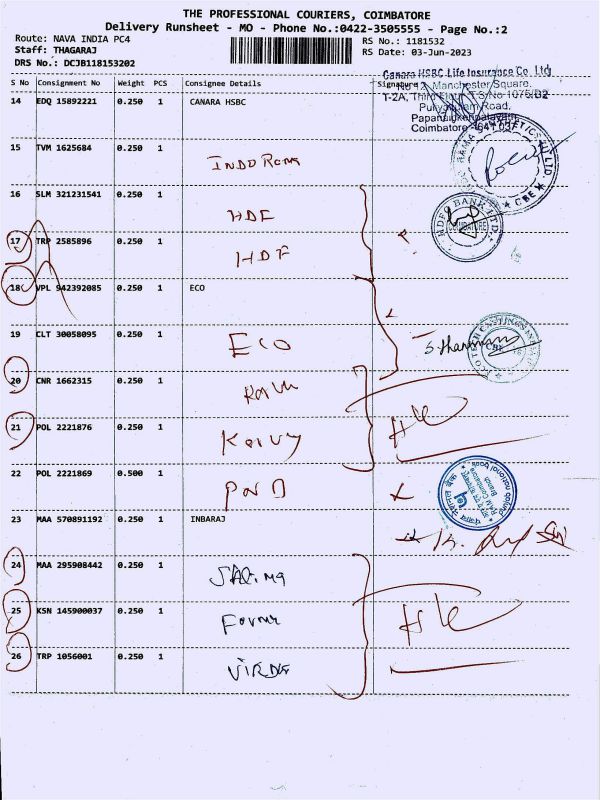 THE PROFESSIONAL COURIERS, COIMBATORE
Delivery Runsheet - MO - Phone No.:0422-3505555 - Page No.:2
Route: NAVA INDIA PC4
Staff: THAGARAJ
DRS No.: DCJB118153202
RS No.: 1181532
RS Date: 03-Jun-2023
S No Consignment No Weight PCS Consignee Details Signature
Canara HSBC Life Insurance Co. Ltd
No 12, Manchester Square,
T-2A, Third Floor, T.S No 1075/B2
Puliyakulam Road,
Papanaickenpalayam,
Coimbatore - 641 037
14 EDQ 15892221 0.250 1 CANARA HSBC
15 TVM 1625684 0.250 1 INDO RAMA
16 SLM 321231541 0.250 1 HDF
HDFC BANK LTD.
COIMBATORE
17 TRP 2585896 0.250 1 HDF
18 VPL 942392085 0.250 1 ECO
19 CLT 30058095 0.250 1 ECO
20 CNR 1662315 0.250 1
21 POL 2221876 0.250 1 Karvy
22 POL 2221869 0.500 1 PNB
punjab national bank
23 MAA 570891192 0.250 1 INBARAJ
24 MAA 295908442 0.250 1
25 KSN 145900037 0.250 1
26 TRP 1056001 0.250 1